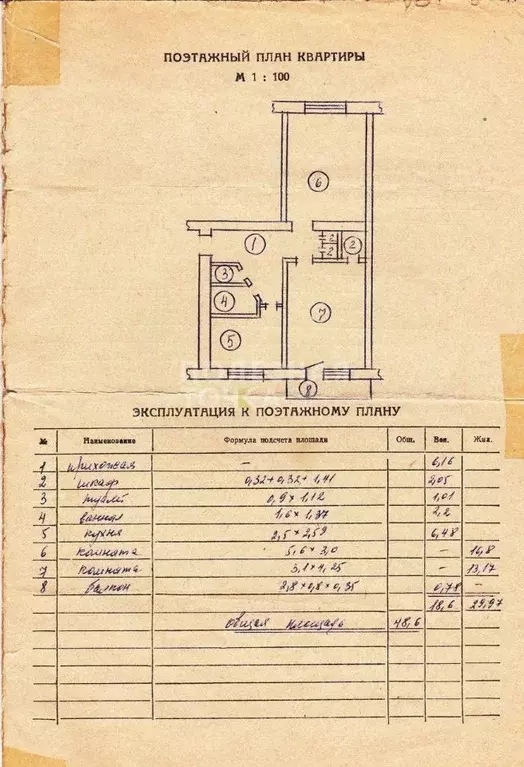 ПОЭТАЖНЫЙ ПЛАН КВАРТИРЫ
М 1 : 100
6
1
2
2
2
3
4
7
5
8
ЭКСПЛУАТАЦИЯ К ПОЭТАЖНОМУ ПЛАНУ
№ Наименование Формула подсчета площади Общ. Вен. Жил.
1 прихожая — 6,16
2 шкаф 0,32+0,32+1,41 2,05
3 туалет 0,9 х 1,12 1,01
4 ванная 1,6 х 1,37 2,2
5 кухня 2,5 х 2,59 6,48
6 комната 5,6 х 3,0 — 16,8
7 комната 3,1 х 4,25 — 13,17
8 балкон 2,8 х 0,8 х 0,35 0,78 —
18,6 29,97
общая площадь 48,6